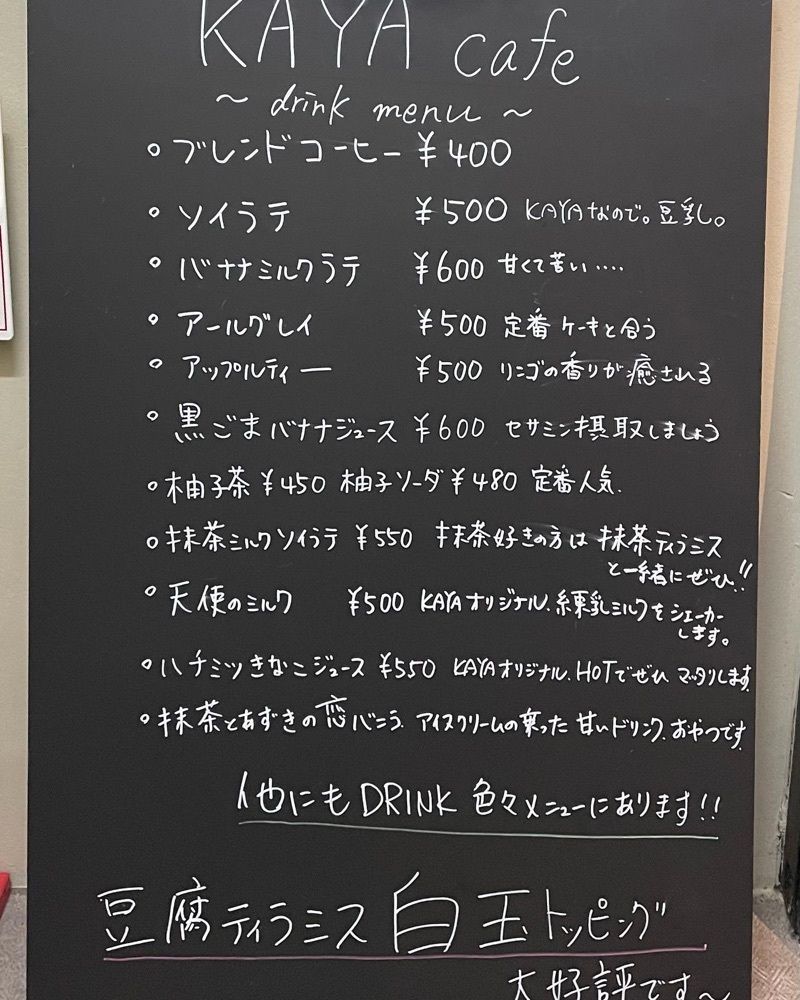 KAYA cafe
~ drink menu ~
○ ブレンドコーヒー ¥400
○ ソイラテ ¥500 KAYAなので。豆乳。
○ バナナミルクラテ ¥600 甘くて苦い‥‥
○ アールグレイ ¥500 定番 ケーキと合う
○ アップルティー ¥500 リンゴの香りが癒される
○ 黒ごまバナナジュース ¥600 セサミン摂取しましょう
○ 柚子茶 ¥450 柚子ソーダ ¥480 定番人気.
○ 抹茶ミルクソイラテ ¥550 抹茶好きの方は 抹茶ティラミス
と一緒にぜひ!!
○ 天使のミルク ¥500 KAYAオリジナル、練乳ミルクをシェーカー
します。
○ ハチミツきなこジュース ¥550 KAYAオリジナル、HOTでぜひ マッタリします
○ 抹茶とあずきの恋 バニラ アイスクリームの乗った 甘いドリンク、おやつです
他にも DRINK 色々メニューにあります!!
豆腐ティラミス 白玉トッピング
大好評です〜